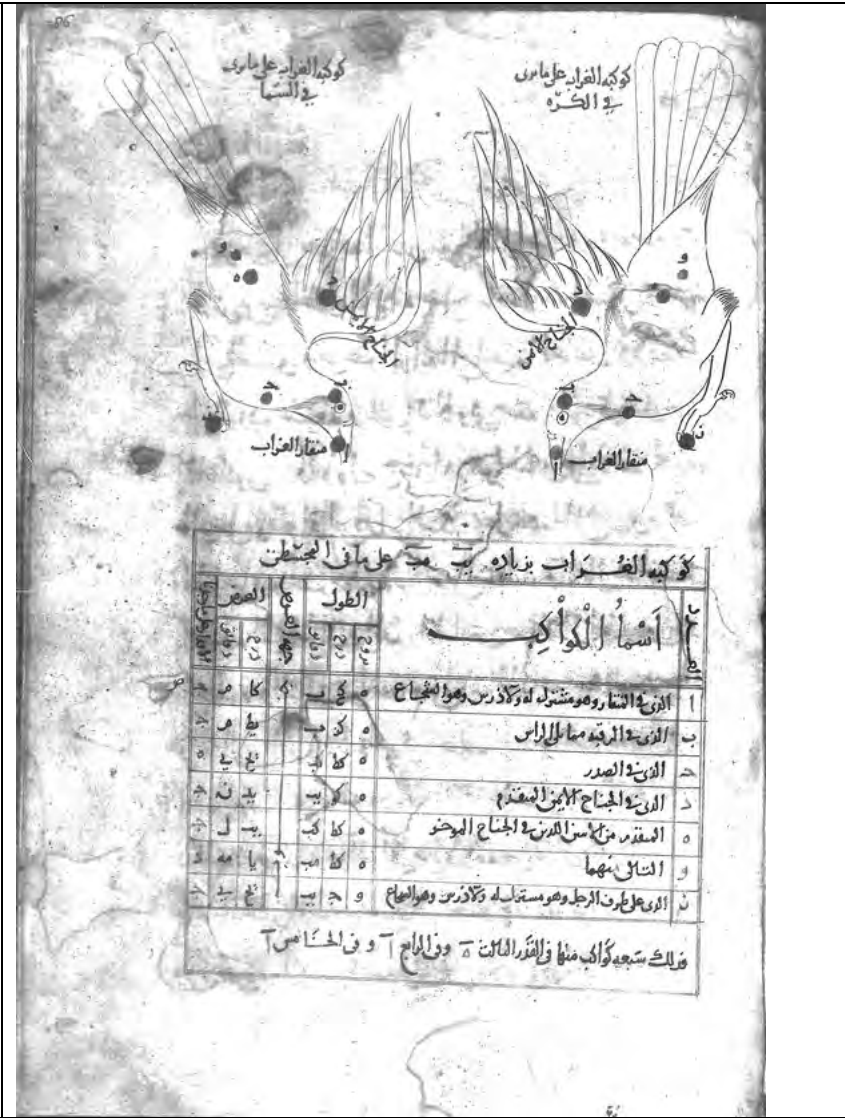 كوكبه الغراب على ما يرى
في الكره
كوكبه الغراب على ما يرى
في السما
و
د
الجناح الايمن
ب
ح
ا
ز
منقار الغراب
و
ه
د
الجناح الايمن
ب
ح
ز
منقار الغراب
كوكبه الغراب بزياده يب مب على ما في المجسطي
العدد
اسما الكواكب
الطول
جهه العرض
العرض
بروج درج دقائق
درج دقائق
ا الذي في المنقار وهو مشترك له وهو الشجاع ه كح ب كا م
ب الذي في الرقبه مما يلي الراس ه كز ب يط م
ح الذي في الصدر ه كط كب يح ي ه
د الذي في الجناح الايمن المتقدم ه كو يب يد ن
ه المتقدم من الاثنين اللذين في الجناح الموخر ه كط كب يب ل
و التالي منهما ه كط مب يا مه د
ز الذي على طرف الرجل وهو مشترك له وهو الشجاع و ج يب يح ي
فذلك سبعه كواكب منها في القدر الثالث ه وفي الرابع ا وفي الخامس ا